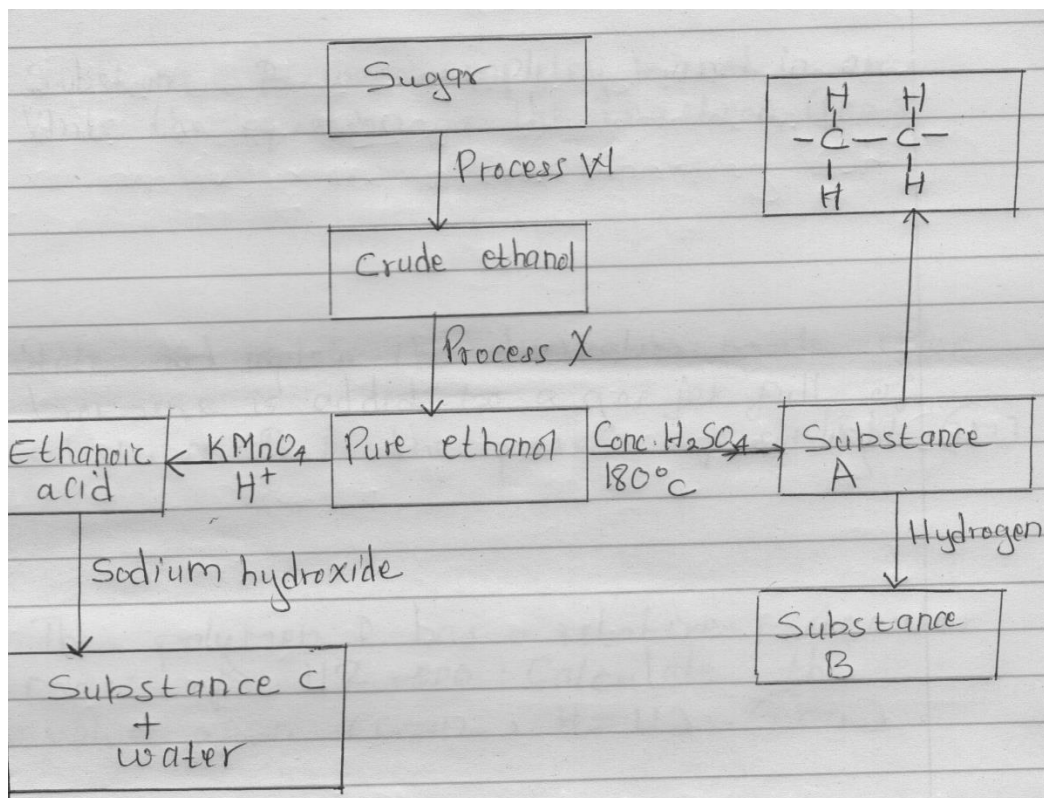 Sugar
Process W
Crude ethanol
Process X
Ethanoic
acid
KMnO₄
H⁺
Pure ethanol
Conc. H₂SO₄
180°C
Substance
A
H H
-C-C-
H H
Hydrogen
Substance
B
Sodium hydroxide
Substance C
+
water